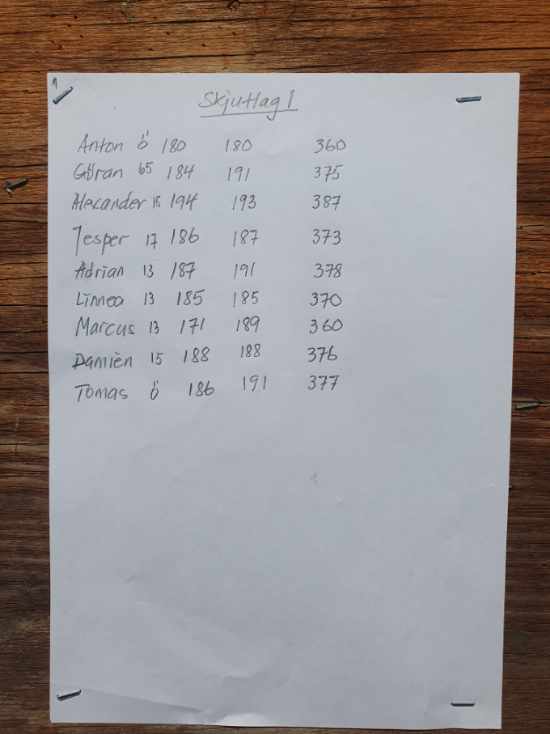 Skjutlag 1
Anton Ö 180 180 360
Göran 65 184 191 375
Alexander 15 194 193 387
Jesper 17 186 187 373
Adrian 13 187 191 378
Linnea 13 185 185 370
Marcus 13 171 189 360
Damien 15 188 188 376
Tomas Ö 186 191 377